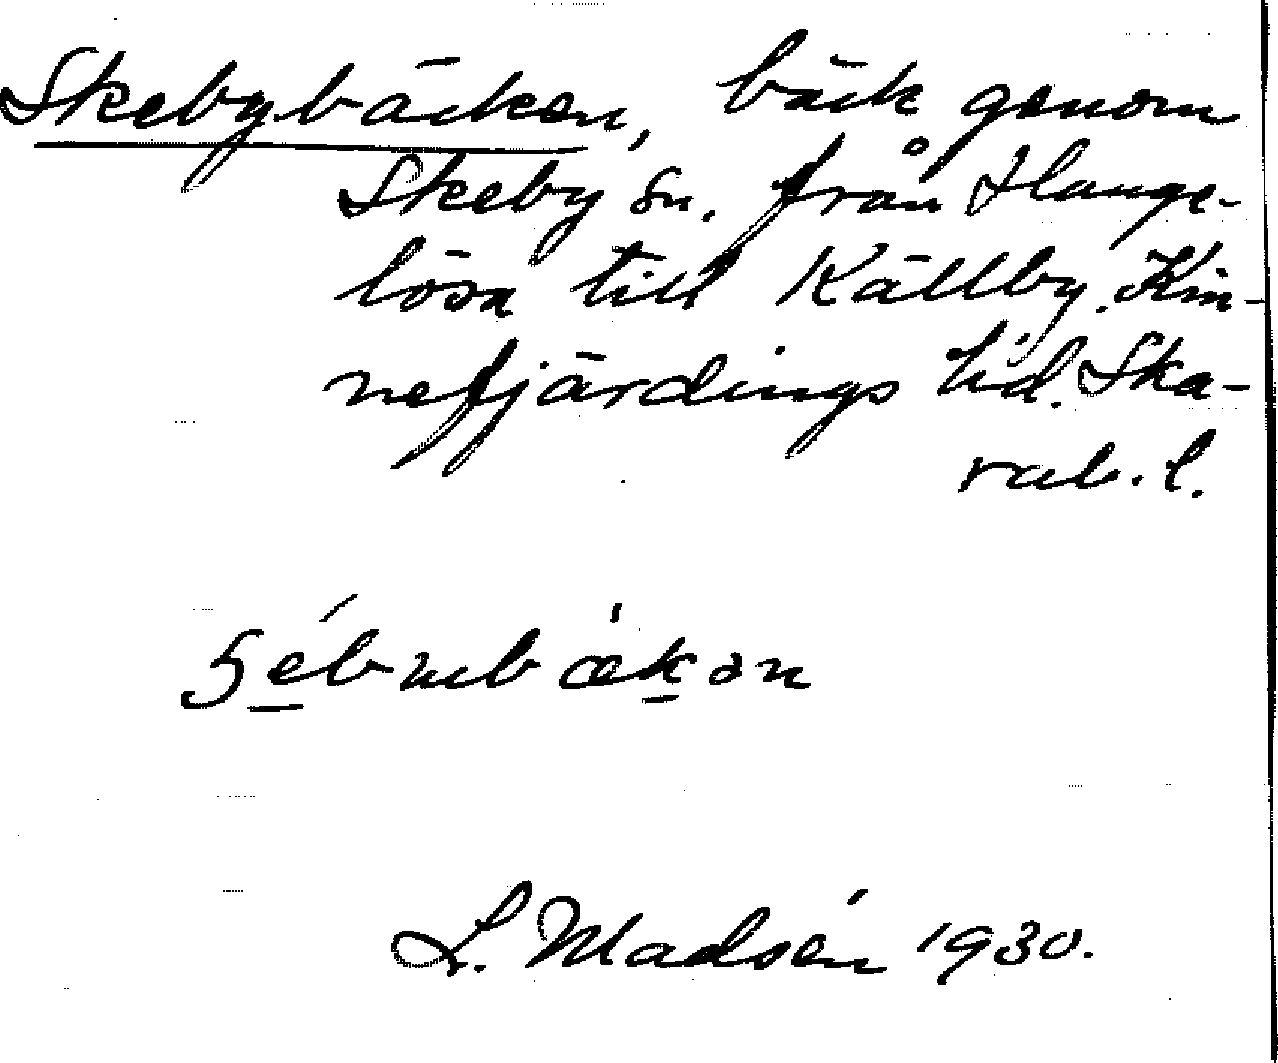 Skebybäcken, bäck genom
Skeby sn. från Hange-
lösa till Källby. Kin-
nefjärdings hd. Ska-
rab. l.
L. Madsén 1930.